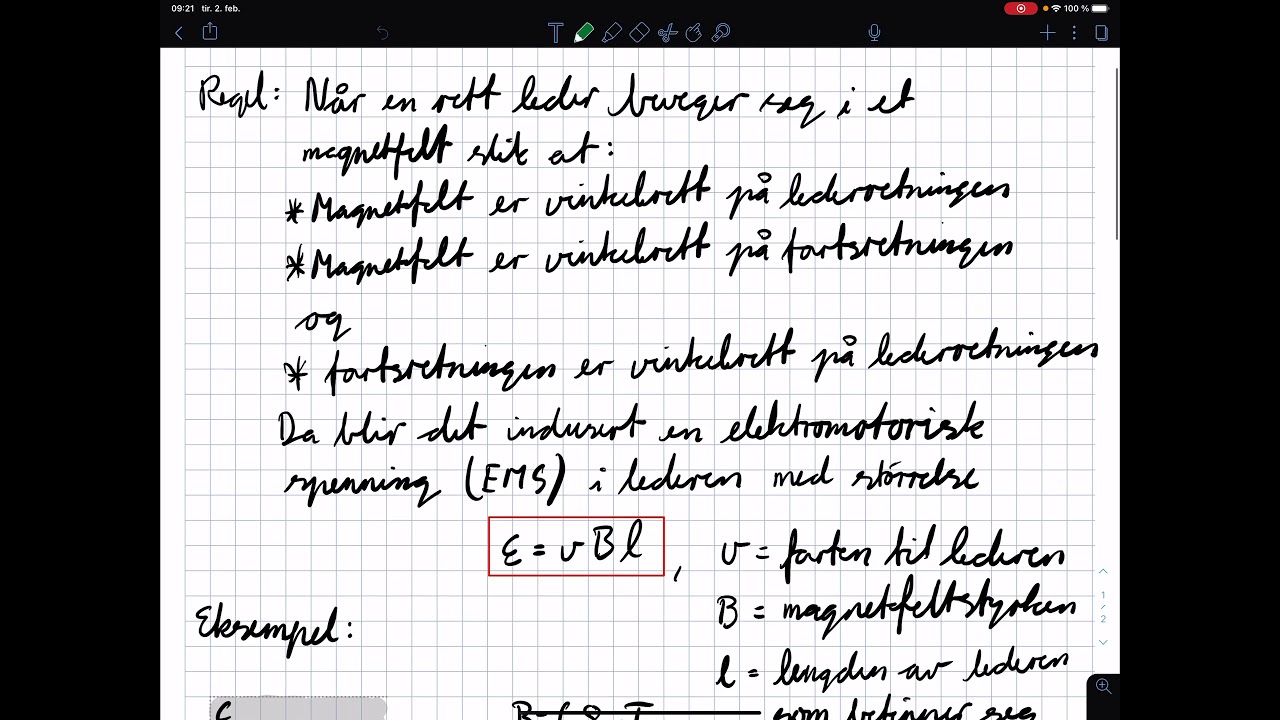 09:21 tir. 2. feb. 100 %
Regel: Når en rett leder beveger seg i et
magnetfelt slik at:
* Magnetfelt er vinkelrett på lederretningen
* Magnetfelt er vinkelrett på fartsretningen
og
* fartsretningen er vinkelrett på lederretningen
Da blir det indusert en elektromotorisk
spenning (EMS) i lederen med størrelse
ε = v B l , v = farten til lederen
B = magnetfeltstyrken
Eksempel:
l = lengden av lederen
som befinner seg
1
/
2